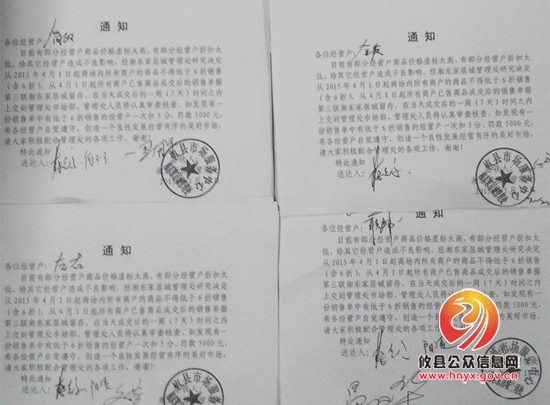 通 知
各位经营户：
目前有部分经营户商品价格虚标太高，有部分经营户折扣太
低，给其它经营户造成不良影响，经湘东家居城管理处研究决定
从2015年4月1日起商场内所有商户的商品不得低于6折销售
（含6折），从4月1日起所有商户已售商品成交后的销售单据
第三联湘东家居城留存，在当天成交后的一周（7天）时间之内
上交到管理处市场部，管理处人员将认真审查核查，如发现有一
份销售单中有低于6折销售的经营户一次扣5分，罚款5000元，
希各经营户自觉遵守，创造一个良性发展经营有序的美好市场，
请大家积极配合管理处的各项工作，谢谢！
特此通知
送达人：
攸县市场服务中心
通 知
各位经营户：
目前有部分经营户商品价格虚标太高，有部分经营户折扣太
低，给其它经营户造成不良影响，经湘东家居城管理处研究决定
从2015年4月1日起商场内所有商户的商品不得低于6折销售
（含6折），从4月1日起所有商户已售商品成交后的销售单据
第三联湘东家居城留存，在当天成交后的一周（7天）时间之内
上交到管理处市场部，管理处人员将认真审查核查，如发现有一
份销售单中有低于6折销售的经营户一次扣5分，罚款5000元，
希各经营户自觉遵守，创造一个良性发展经营有序的美好市场，
请大家积极配合管理处的各项工作，谢谢！
特此通知
送达人：
攸县市场服务中心
通 知
各位经营户：
目前有部分经营户商品价格虚标太高，有部分经营户折扣太
低，给其它经营户造成不良影响，经湘东家居城管理处研究决定
从2015年4月1日起商场内所有商户的商品不得低于6折销售
（含6折），从4月1日起所有商户已售商品成交后的销售单据
第三联湘东家居城留存，在当天成交后的一周（7天）时间之内
上交到管理处市场部，管理处人员将认真审查核查，如发现有一
份销售单中有低于6折销售的经营户一次扣5分，罚款5000元，
希各经营户自觉遵守，创造一个良性发展经营有序的美好市场，
请大家积极配合管理处的各项工作，谢谢！
特此通知
送达人：
通 知
各位经营户：
目前有部分经营户商品价格虚标太高，有部分经营户折扣太
低，给其它经营户造成不良影响，经湘东家居城管理处研究决定
从2015年4月1日起商场内所有商户的商品不得低于6折销售
（含6折），从4月1日起所有商户已售商品成交后的销售单据
第三联湘东家居城留存，在当天成交后的一周（7天）时间之内
上交到管理处市场部，管理处人员将认真审查核查，如发现有一
份销售单中有低于6折销售的经营户一次扣5分，罚款
希各经营户自觉遵守，创造一个良性发展经营有序的
请大家积极配合管理处的各项工作，谢谢！
特此通知
送达人：
攸县公众信息网
www.hnyx.gov.cn